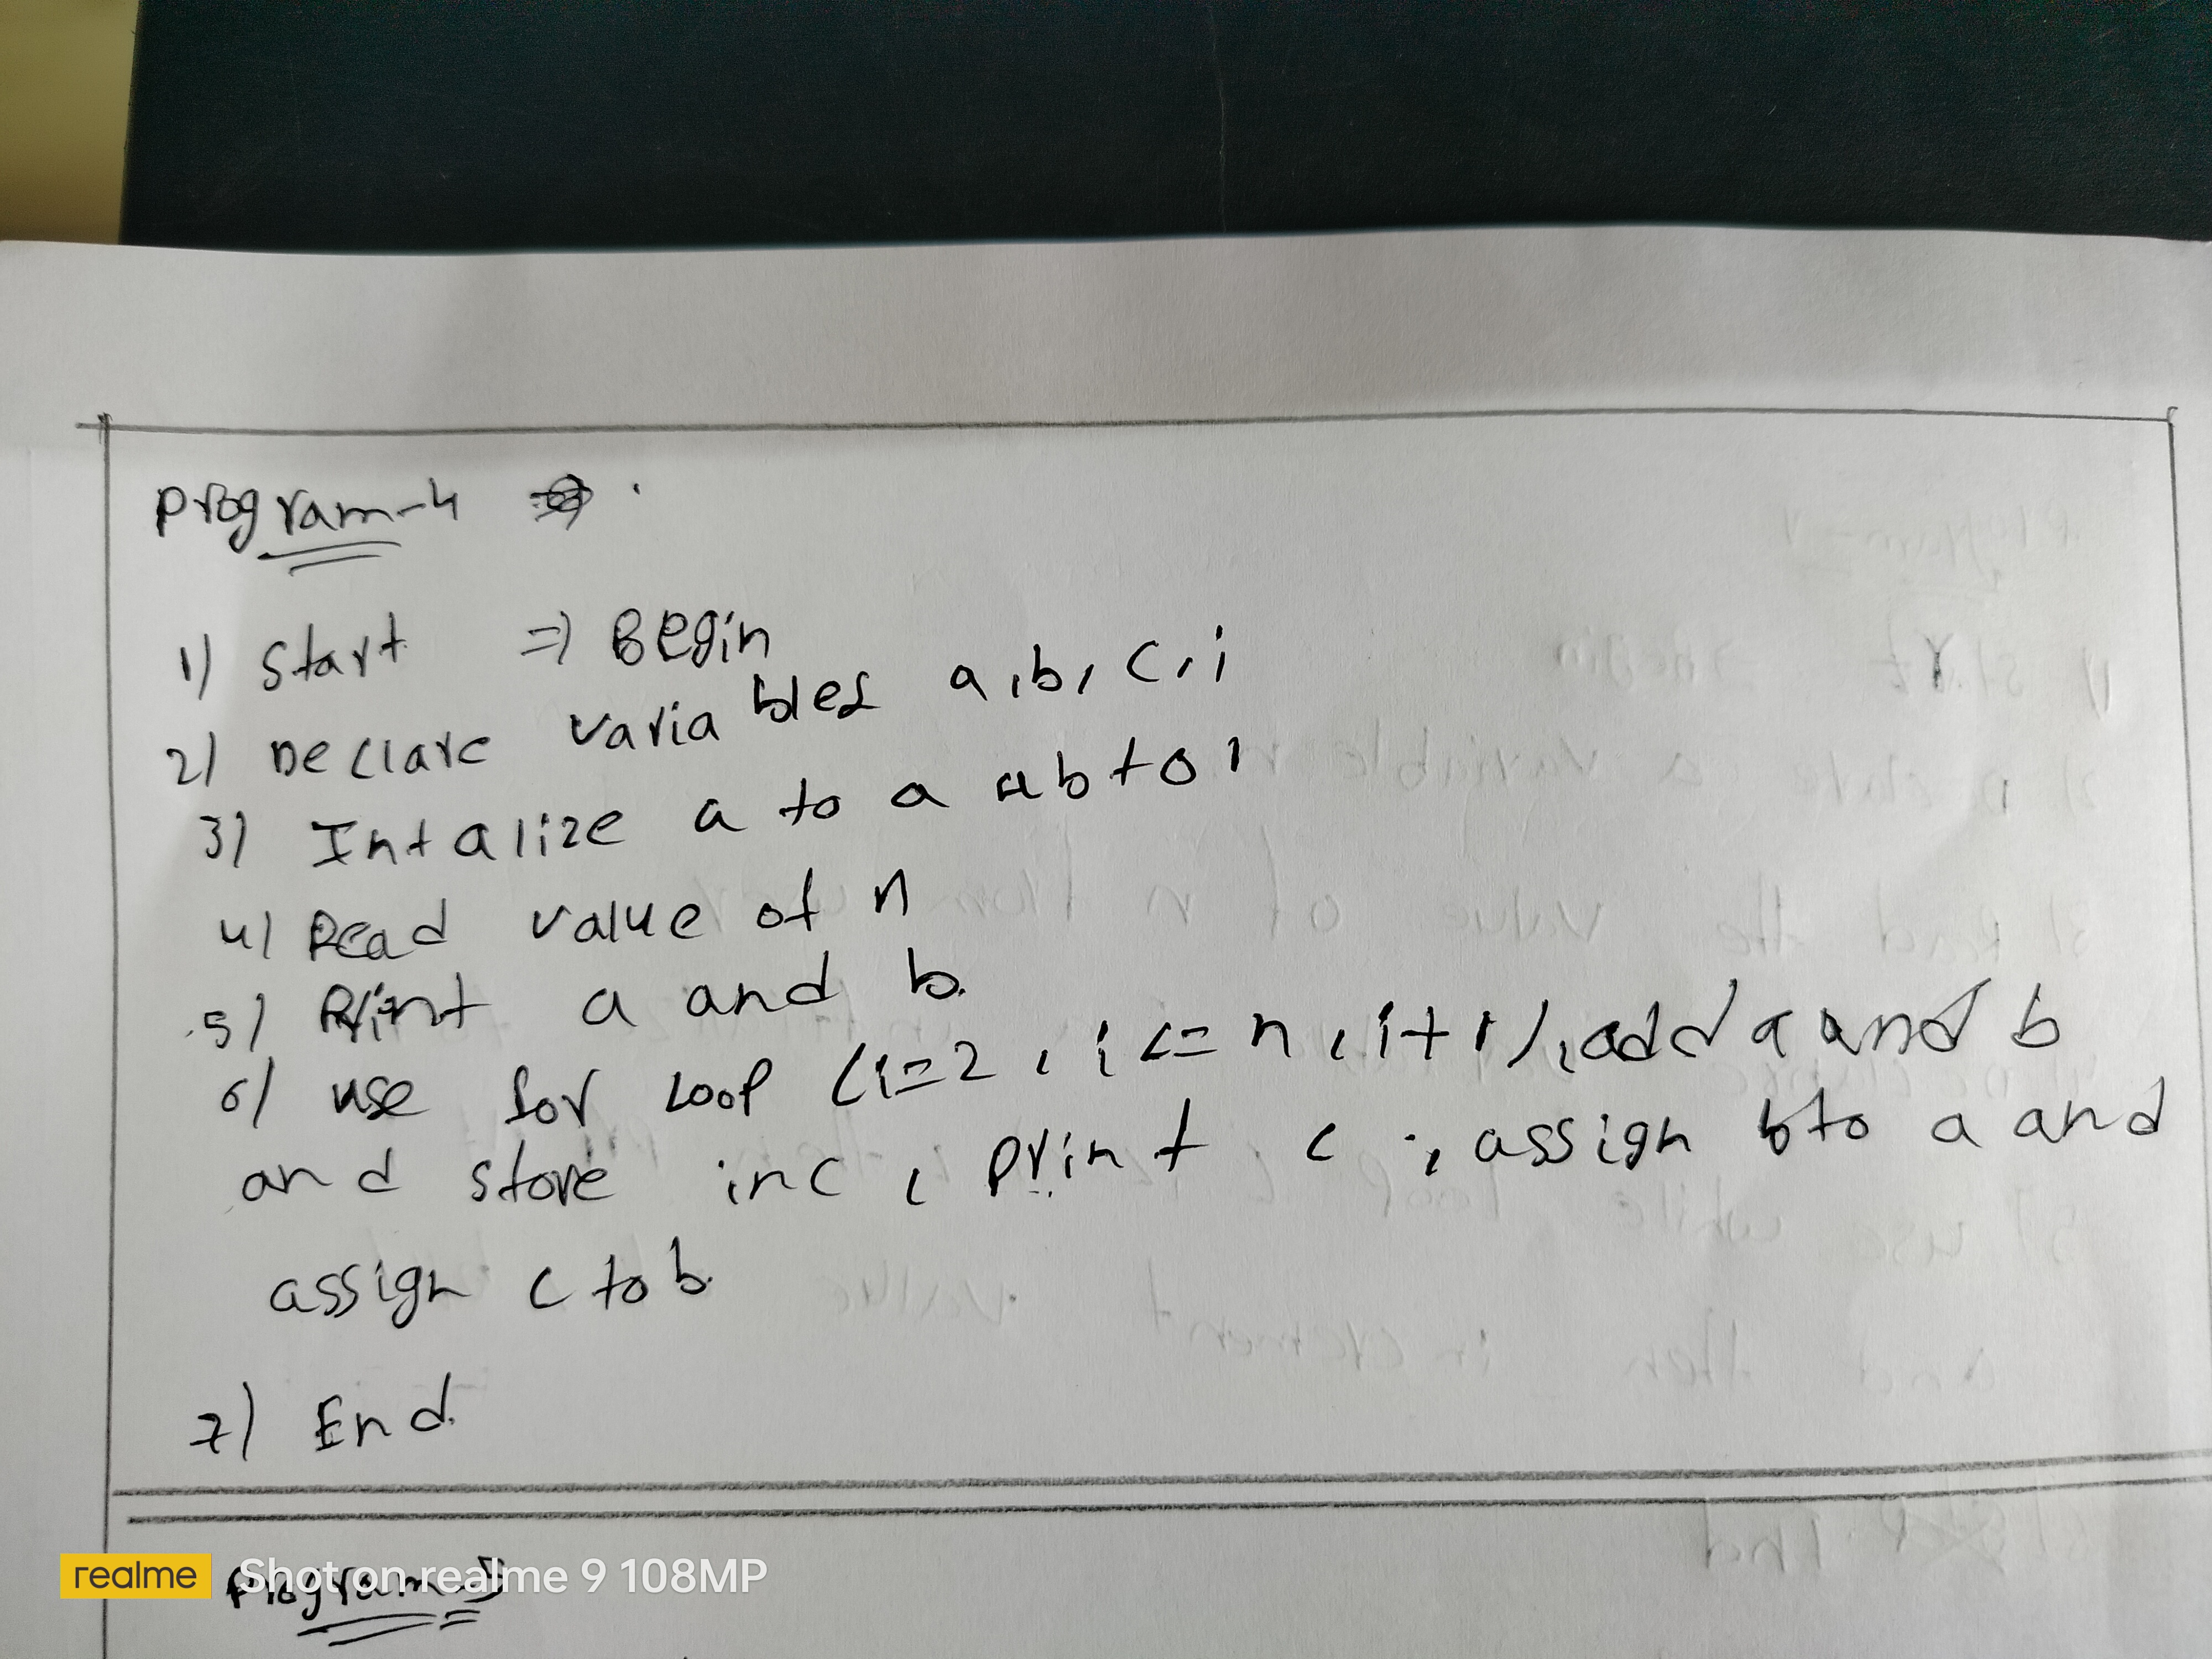 Program-4
1) Start => Begin
2) Declare variables a,b, c,i
3) Intalize a to a b to 1
4) Read value of n
5) Print a and b.
6) use for loop (i=2, i<=n, i+1), add a and b
and store inc, print c, assign b to a and
assign c to b.
7) End.
realme Shot on realme 9 108MP
Program-5